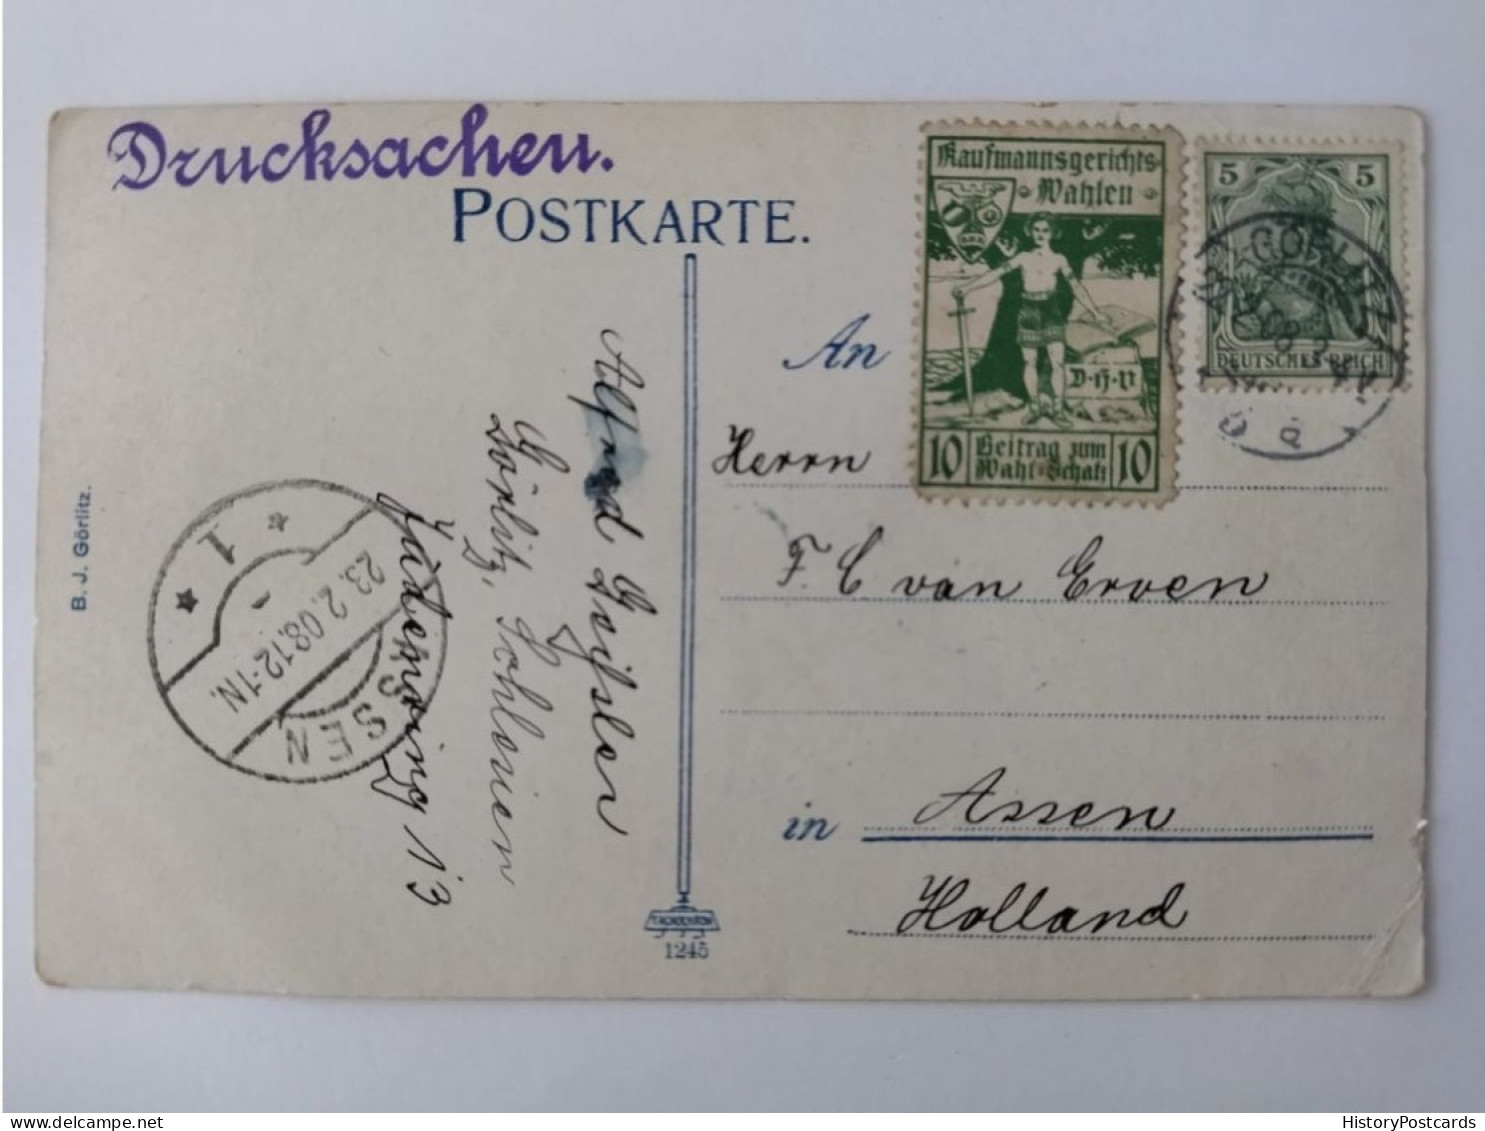 Drucksachen.
POSTKARTE.
Kaufmannsgerichts-
Wahlen
D·H·V
10 Beitrag zum 10
Wahl-Schatz
5 5
DEUTSCHES REICH
GÖRLITZ
An
Herrn
F C van Erven
in Assen
Holland
Alfred Geissler
Görlitz, Schlesien
13
1
23.2.08.12-1N.
ASSEN
B. J. Görlitz.
1245
HistoryPostcards.com